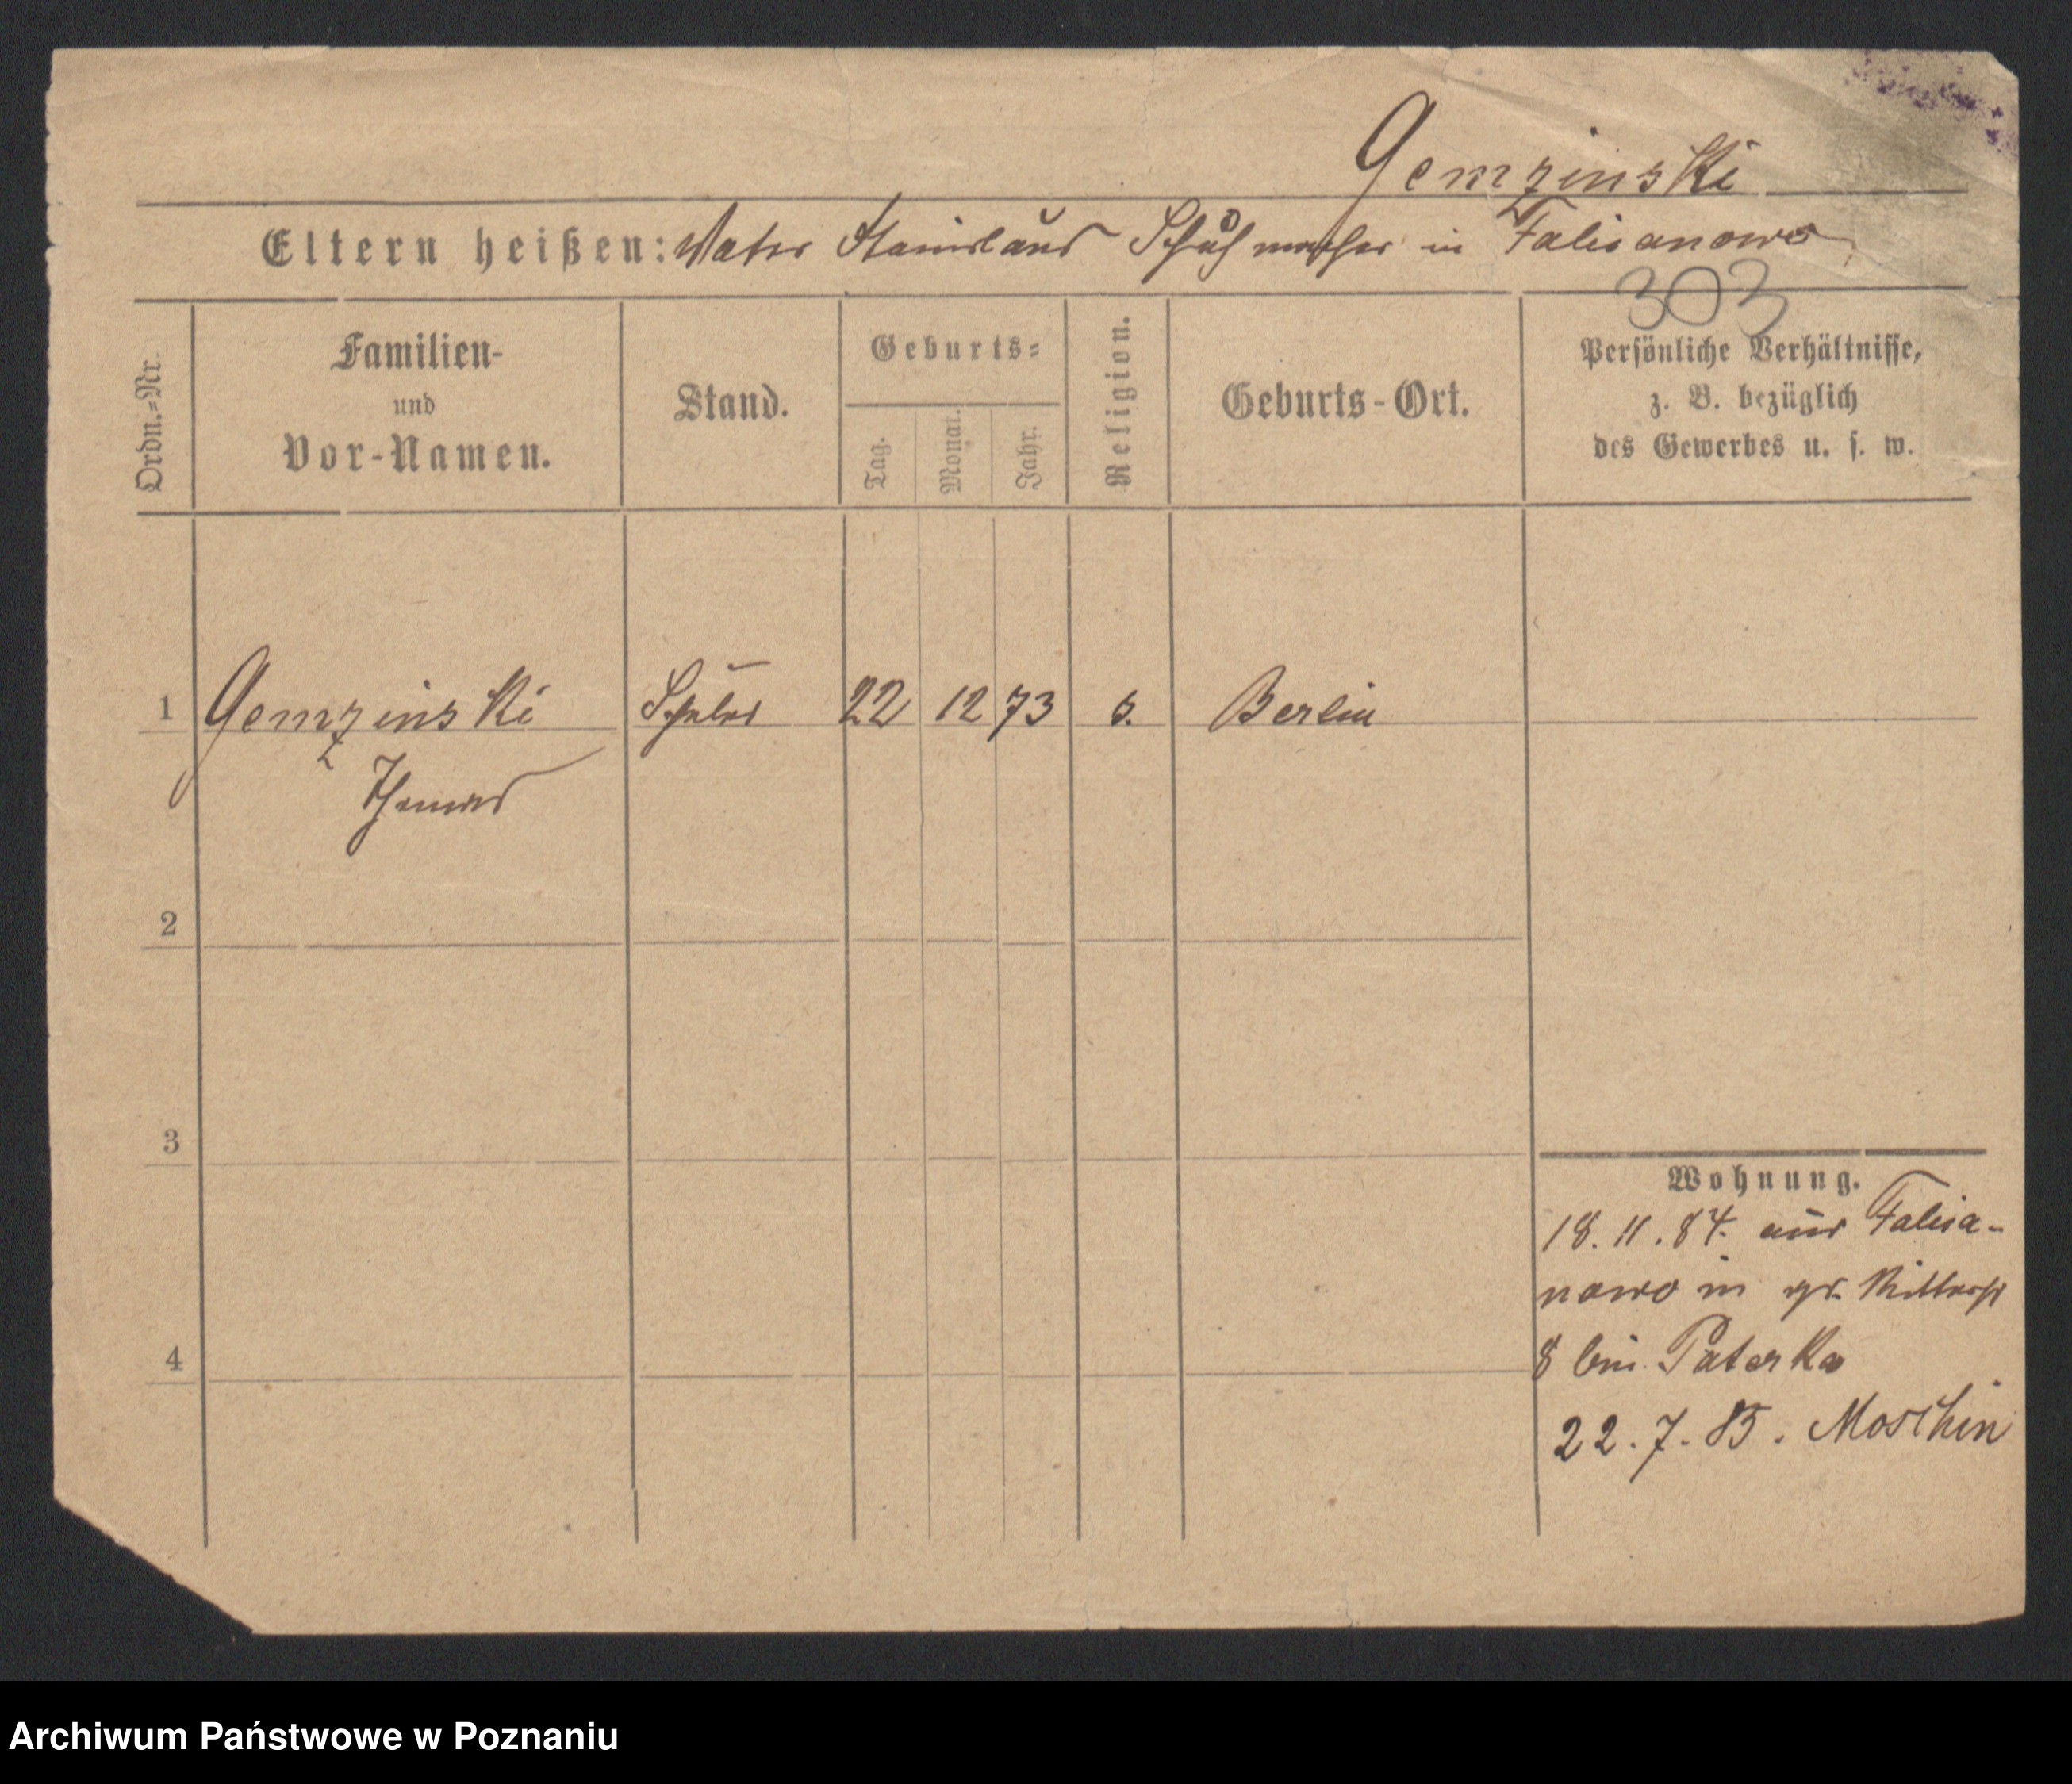 Gemzinski
Eltern heißen: Vater Stanislaus Schuhmacher in Falisanowo
303
Ordn.=Nr.
Familien-
und
Vor-Namen.
Stand.
Geburts=
Tag.
Monat.
Jahr.
Religion.
Geburts-Ort.
Persönliche Verhältnisse,
z. B. bezüglich
des Gewerbes u. s. w.
1 Gemzinski Schüler 22 12 73 Berlin
Thomas
2
3
4
Wohnung.
18. 11. 84. aus Falisa-
nowo in gr. Ritterstr
8 bei Paterka
22. 7. 85. Moschin
Archiwum Państwowe w Poznaniu